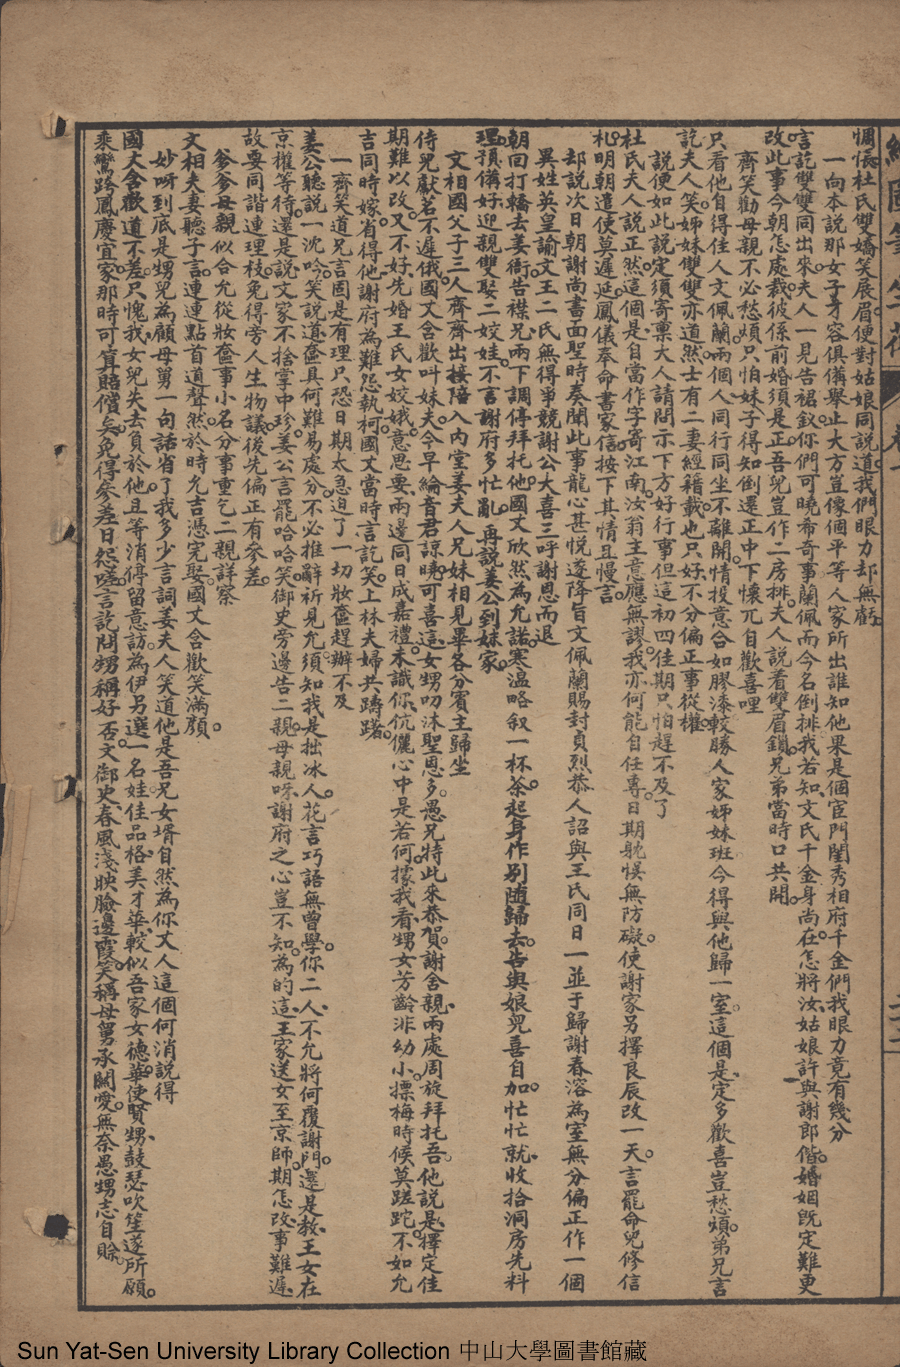 惆悵杜氏雙嬌笑展眉便對姑娘同說道我們眼力却無虧
一向本說那女子才容俱備舉止大方豈像個平等人家所出誰知他果是個宦門閨秀相府千金們我眼力竟有幾分
言訖雙雙同出來夫人一見告裙釵你們可曉希奇事蘭佩而今名倒排我若知文氏千金身尚在怎將汝姑娘許與謝郎偕婚姻旣定難更
改此事今朝怎處裁彼係前婚須是正吾兒豈作二房排夫人說看雙眉鎖兄弟當時口共開
齊笑勸母親不必愁煩只怕妹子得知倒還正中下懷兀自歡喜哩
只看他自得佳人文佩蘭兩個人同行同坐不離開情投意合如膠漆較勝人家姊妹班今得與他歸一室這個是定多歡喜豈愁煩弟兄言
訖夫人笑姊妹雙雙亦道然士有二妻經籍載也只好不分偏正事從權
說便如此說定須寄稟大人請問示下方好行事但這初四佳期只怕趕不及了
杜氏夫人說正然這個是自當作字寄江南汝翁主意應無謬我亦何能自任專日期躭悞無防礙使謝家另擇良辰改一天言罷命兒修信
札明朝遣使莫遲延鳳儀奉命書家信按下其情且慢言
却說次日朝謝尚書面聖時奏聞此事龍心甚悅遂降旨文佩蘭賜封貞烈恭人詔與王氏同日一並于歸謝春溶為室無分偏正作一個
異姓英皇諭文王二氏無得爭競謝公大喜三呼謝恩而退
朝回打轎去姜衙告襟兄兩下調停拜托他國丈欣然為允諾寒溫略叙一杯茶起身作別隨歸去告與娘兒喜自加忙忙就收拾洞房先料
理預備好迎親雙娶二姣娃不言謝府多忙亂再說姜公到妹家
文相國父子三人齊齊出接陪入內堂姜夫人兄妹相見畢各分賓主歸坐
侍兒獻茗不遲俄國丈含歡叫妹夫今早綸音君諒曉可喜這女甥叨沐聖恩多愚兄特此來恭賀謝舍親兩處周旋拜托吾他說是擇定佳
期難以改又不好先婚王氏女姣娥意思要兩邊同日成嘉禮未識你伉儷心中是若何據我看甥女芳齡非幼小摽梅時候莫蹉跎不如允
吉同時嫁省得他謝府為難怨執柯國丈當時言訖笑上林夫婦共躊躇
一齊笑道兄言固是有理只恐日期太急迫了一切妝奩趕辦不及
姜公聽說一沈吟笑說道奩具何難易處分不必推辭祈見允須知我是拙冰人花言巧語無曾學你二人不允將何覆謝門還是教王女在
京權等待還是說文家不捨掌中珍姜公言罷哈哈笑御史旁邊告二親母親呀謝府之心豈不知為的這王家送女至京師期怎改事難遲
故要同諧連理枝免得旁人生物議後先偏正有參差
爹爹母親似合允從妝奩事小名分事重乞二親詳察
文相夫妻聽子言連連點首道聲然於時允吉憑完娶國丈含歡笑滿顏
妙呀到底是甥兒為顧母舅一句話省了我多少言詞姜夫人笑道他是吾兄女壻自然為你丈人這個何消說得
國丈含歡道不差只愧我女兒失去負於他且等消停留意訪為伊另選一名娃佳品格美才華較似吾家女德華使賢甥鼓瑟吹笙遂所願
乘鸞跨鳳慶宜家那時可算賠償矣免得參差日怨嗟言訖問甥稱好否文御史春風淺映臉邊霞笑稱母舅承關愛無奈愚甥志自賒
Sun Yat-Sen University Library Collection 中山大學圖書館藏